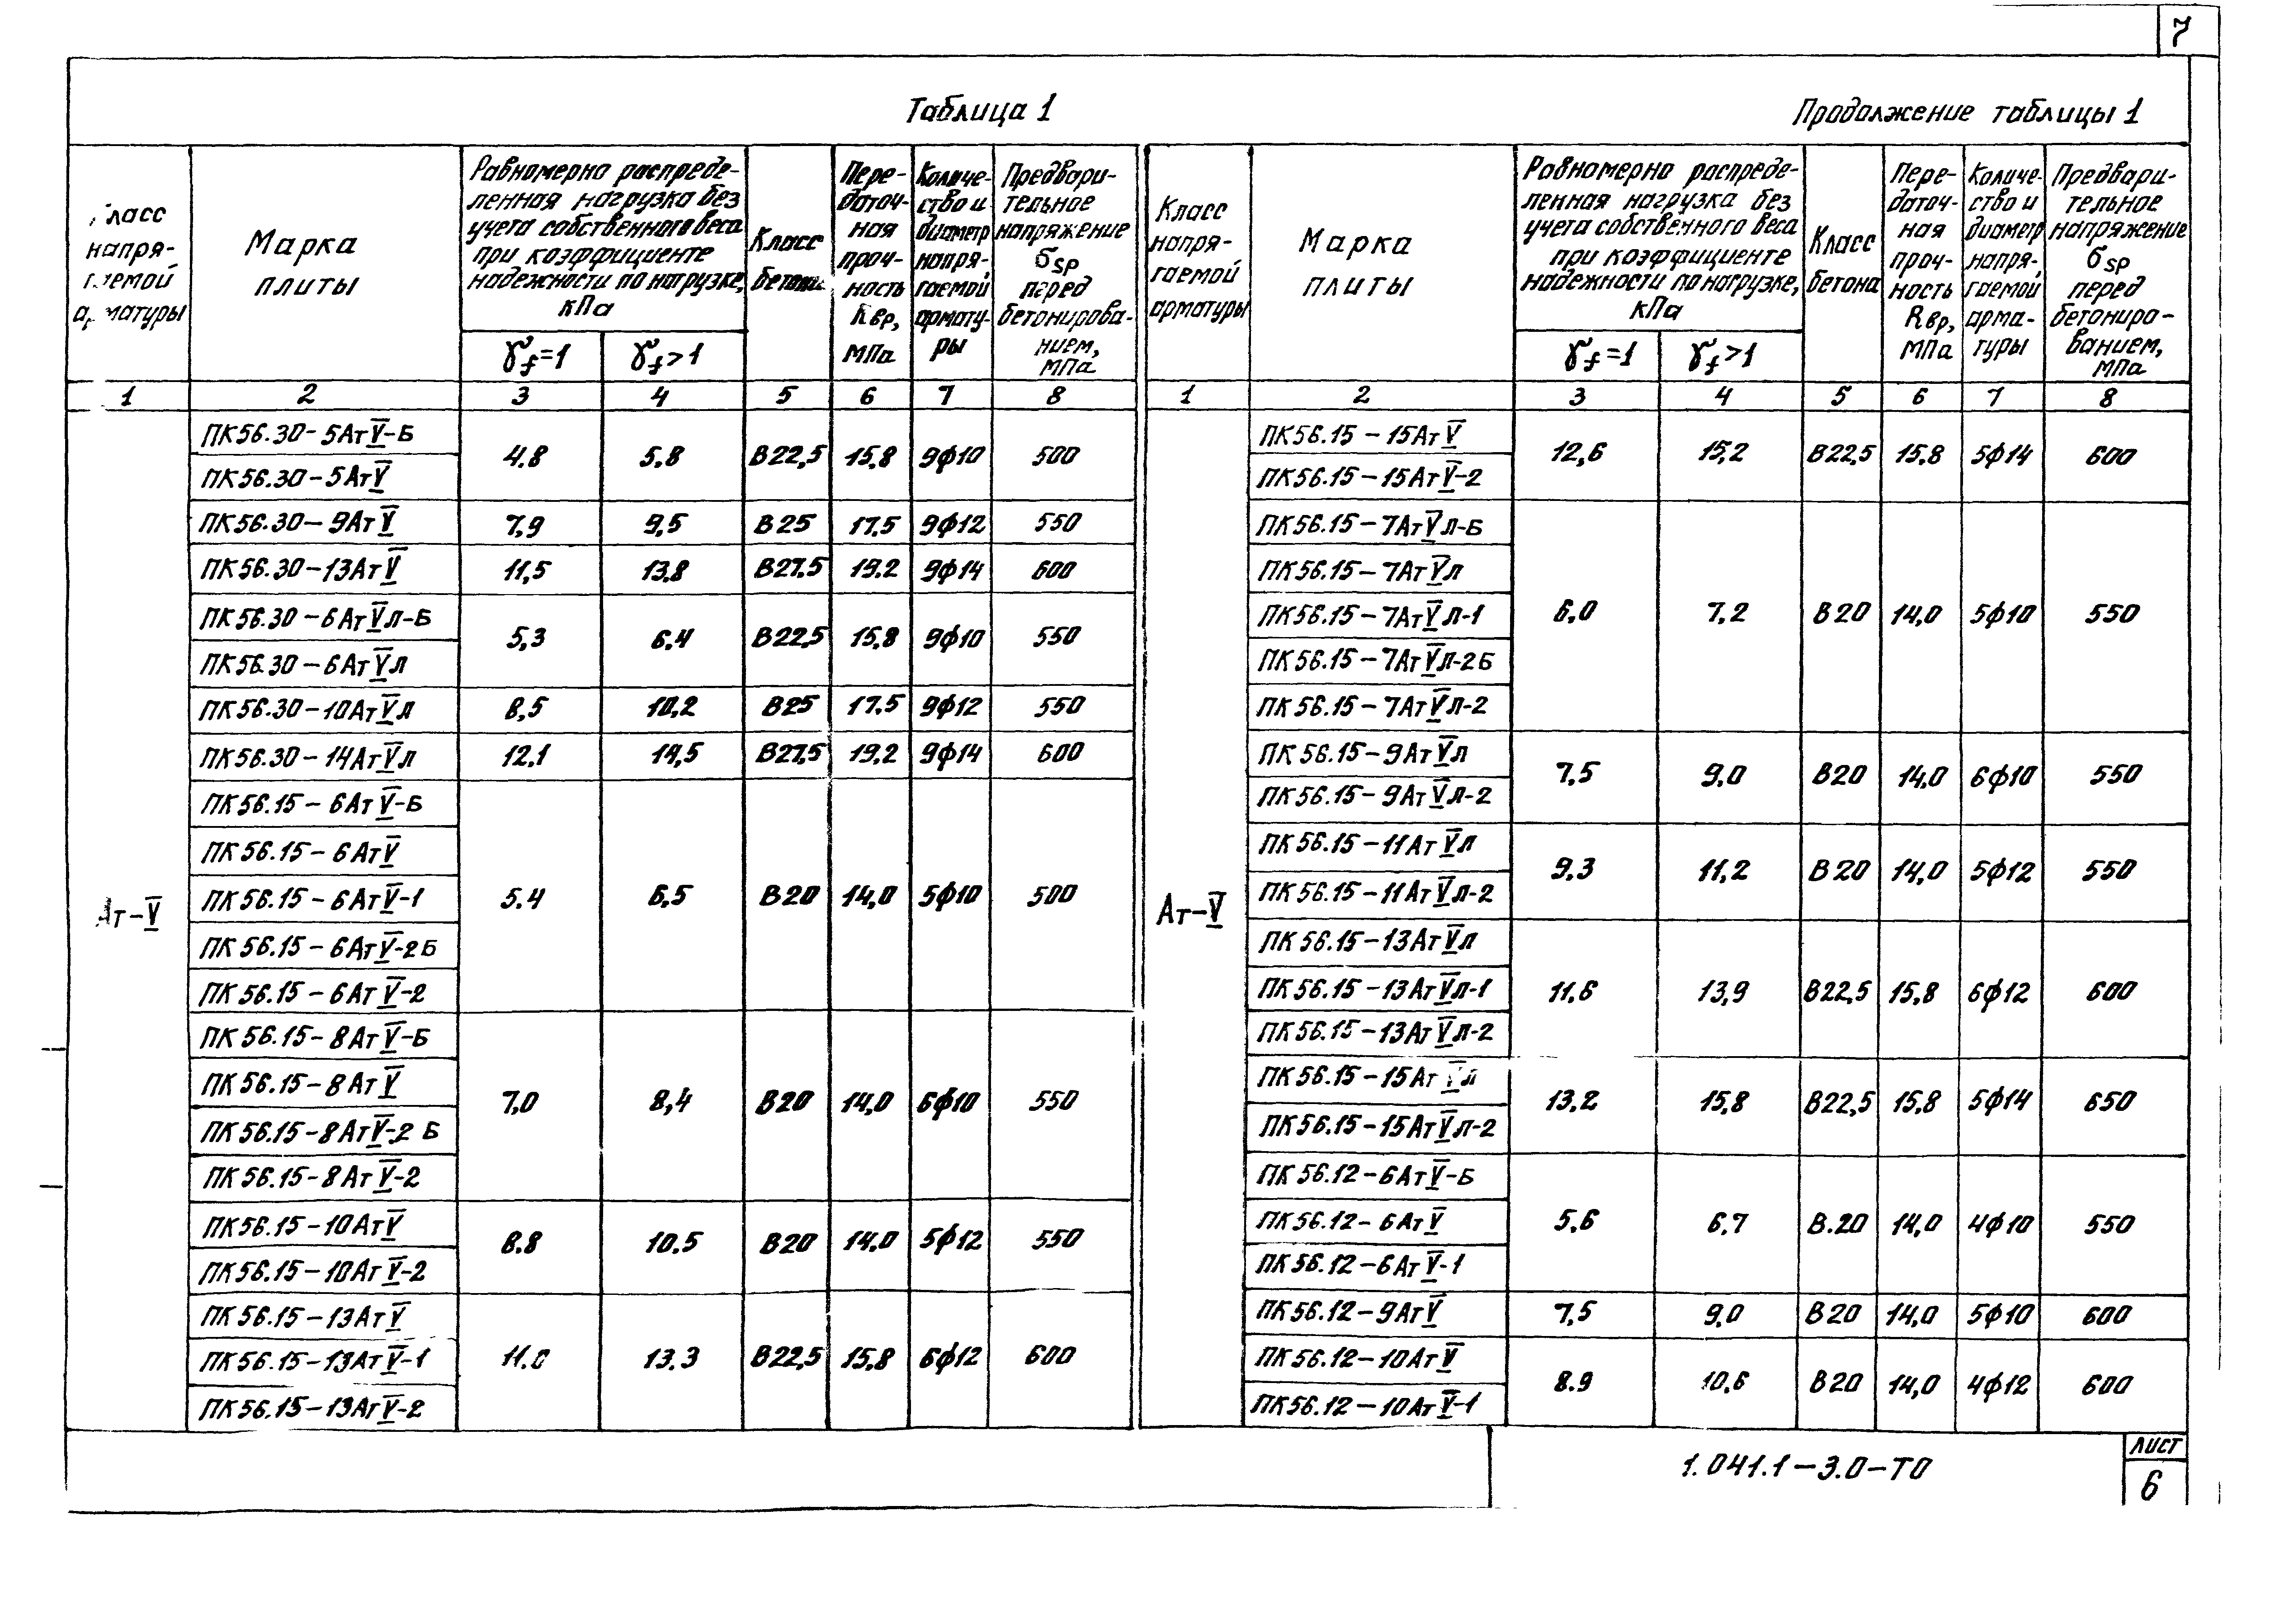 7
Таблица 1
Продолжение таблицы 1
Класс напря-гаемой арматуры
Марка плиты
Равномерно распреде-ленная нагрузка без учета собственного веса при коэффициенте надежности по нагрузке, кПа
γf=1
γf>1
Класс бетона
Пере-даточ-ная проч-ность Rвр, МПа
Количе-ство и диаметр напря-гаемой армату-ры
Предвари-тельное напряжение σsp перед бетонирова-нием, МПа
1 2 3 4 5 6 7 8
Ат-V
ПК56.30-5АтV-Б
ПК56.30-5АтV
4.8 5.8 В22,5 15,8 9ф10 500
ПК56.30-9АтV 7,9 9,5 В25 17.5 9ф12 550
ПК56.30-13АтV 11,5 13.8 В27.5 19.2 9ф14 600
ПК56.30-6АтVЛ-Б
ПК56.30-6АтVЛ
5,3 6.4 В22,5 15,8 9ф10 550
ПК56.30-10АтVЛ 8,5 10,2 В25 17.5 9ф12 550
ПК56.30-14АтVЛ 12,1 14,5 В27,5 19,2 9ф14 600
ПК56.15-6АтV-Б
ПК56.15-6АтV
ПК56.15-6АтV-1
ПК56.15-6АтV-2Б
ПК56.15-6АтV-2
5.4 6,5 В20 14,0 5ф10 500
ПК56.15-8АтV-Б
ПК56.15-8АтV
ПК56.15-8АтV-2Б
ПК56.15-8АтV-2
7,0 8,4 В20 14,0 6ф10 550
ПК56.15-10АтV
ПК56.15-10АтV-2
8.8 10.5 В20 14.0 5ф12 550
ПК56.15-13АтV
ПК56.15-13АтV-1
ПК56.15-13АтV-2
11.0 13.3 В22,5 15,8 6ф12 600
Класс напря-гаемой арматуры
Марка плиты
Равномерно распреде-ленная нагрузка без учета собственного веса при коэффициенте надежности по нагрузке, кПа
γf=1
γf>1
Класс бетона
Пере-даточ-ная проч-ность Rвр, МПа
Количе-ство и диаметр напря-гаемой арма-туры
Предвари-тельное напряжение σsp перед бетониро-ванием, МПа
1 2 3 4 5 6 7 8
Ат-V
ПК56.15-15АтV
ПК56.15-15АтV-2
12,6 15,2 В22,5 15.8 5ф14 600
ПК56.15-7АтVЛ-Б
ПК56.15-7АтVЛ
ПК56.15-7АтVЛ-1
ПК56.15-7АтVЛ-2Б
ПК56.15-7АтVЛ-2
6,0 7,2 В20 14,0 5ф10 550
ПК56.15-9АтVЛ
ПК56.15-9АтVЛ-2
7,5 9,0 В20 14,0 6ф10 550
ПК56.15-11АтVЛ
ПК56.15-11АтVЛ-2
9.3 11,2 В20 14,0 5ф12 550
ПК56.15-13АтVЛ
ПК56.15-13АтVЛ-1
ПК56.15-13АтVЛ-2
11.6 13,9 В22,5 15,8 6ф12 600
ПК56.15-15АтVЛ
ПК56.15-15АтVЛ-2
13.2 15,8 В22,5 15,8 5ф14 650
ПК56.12-6АтV-Б
ПК56.12-6АтV
ПК56.12-6АтV-1
5,6 6,7 В.20 14,0 4ф10 550
ПК56.12-9АтV 7,5 9,0 В20 14,0 5ф10 600
ПК56.12-10АтV
ПК56.12-10АтV-1
8.9 10,6 В20 14,0 4ф12 600
1.041.1-3.0-ТО
ЛИСТ
6